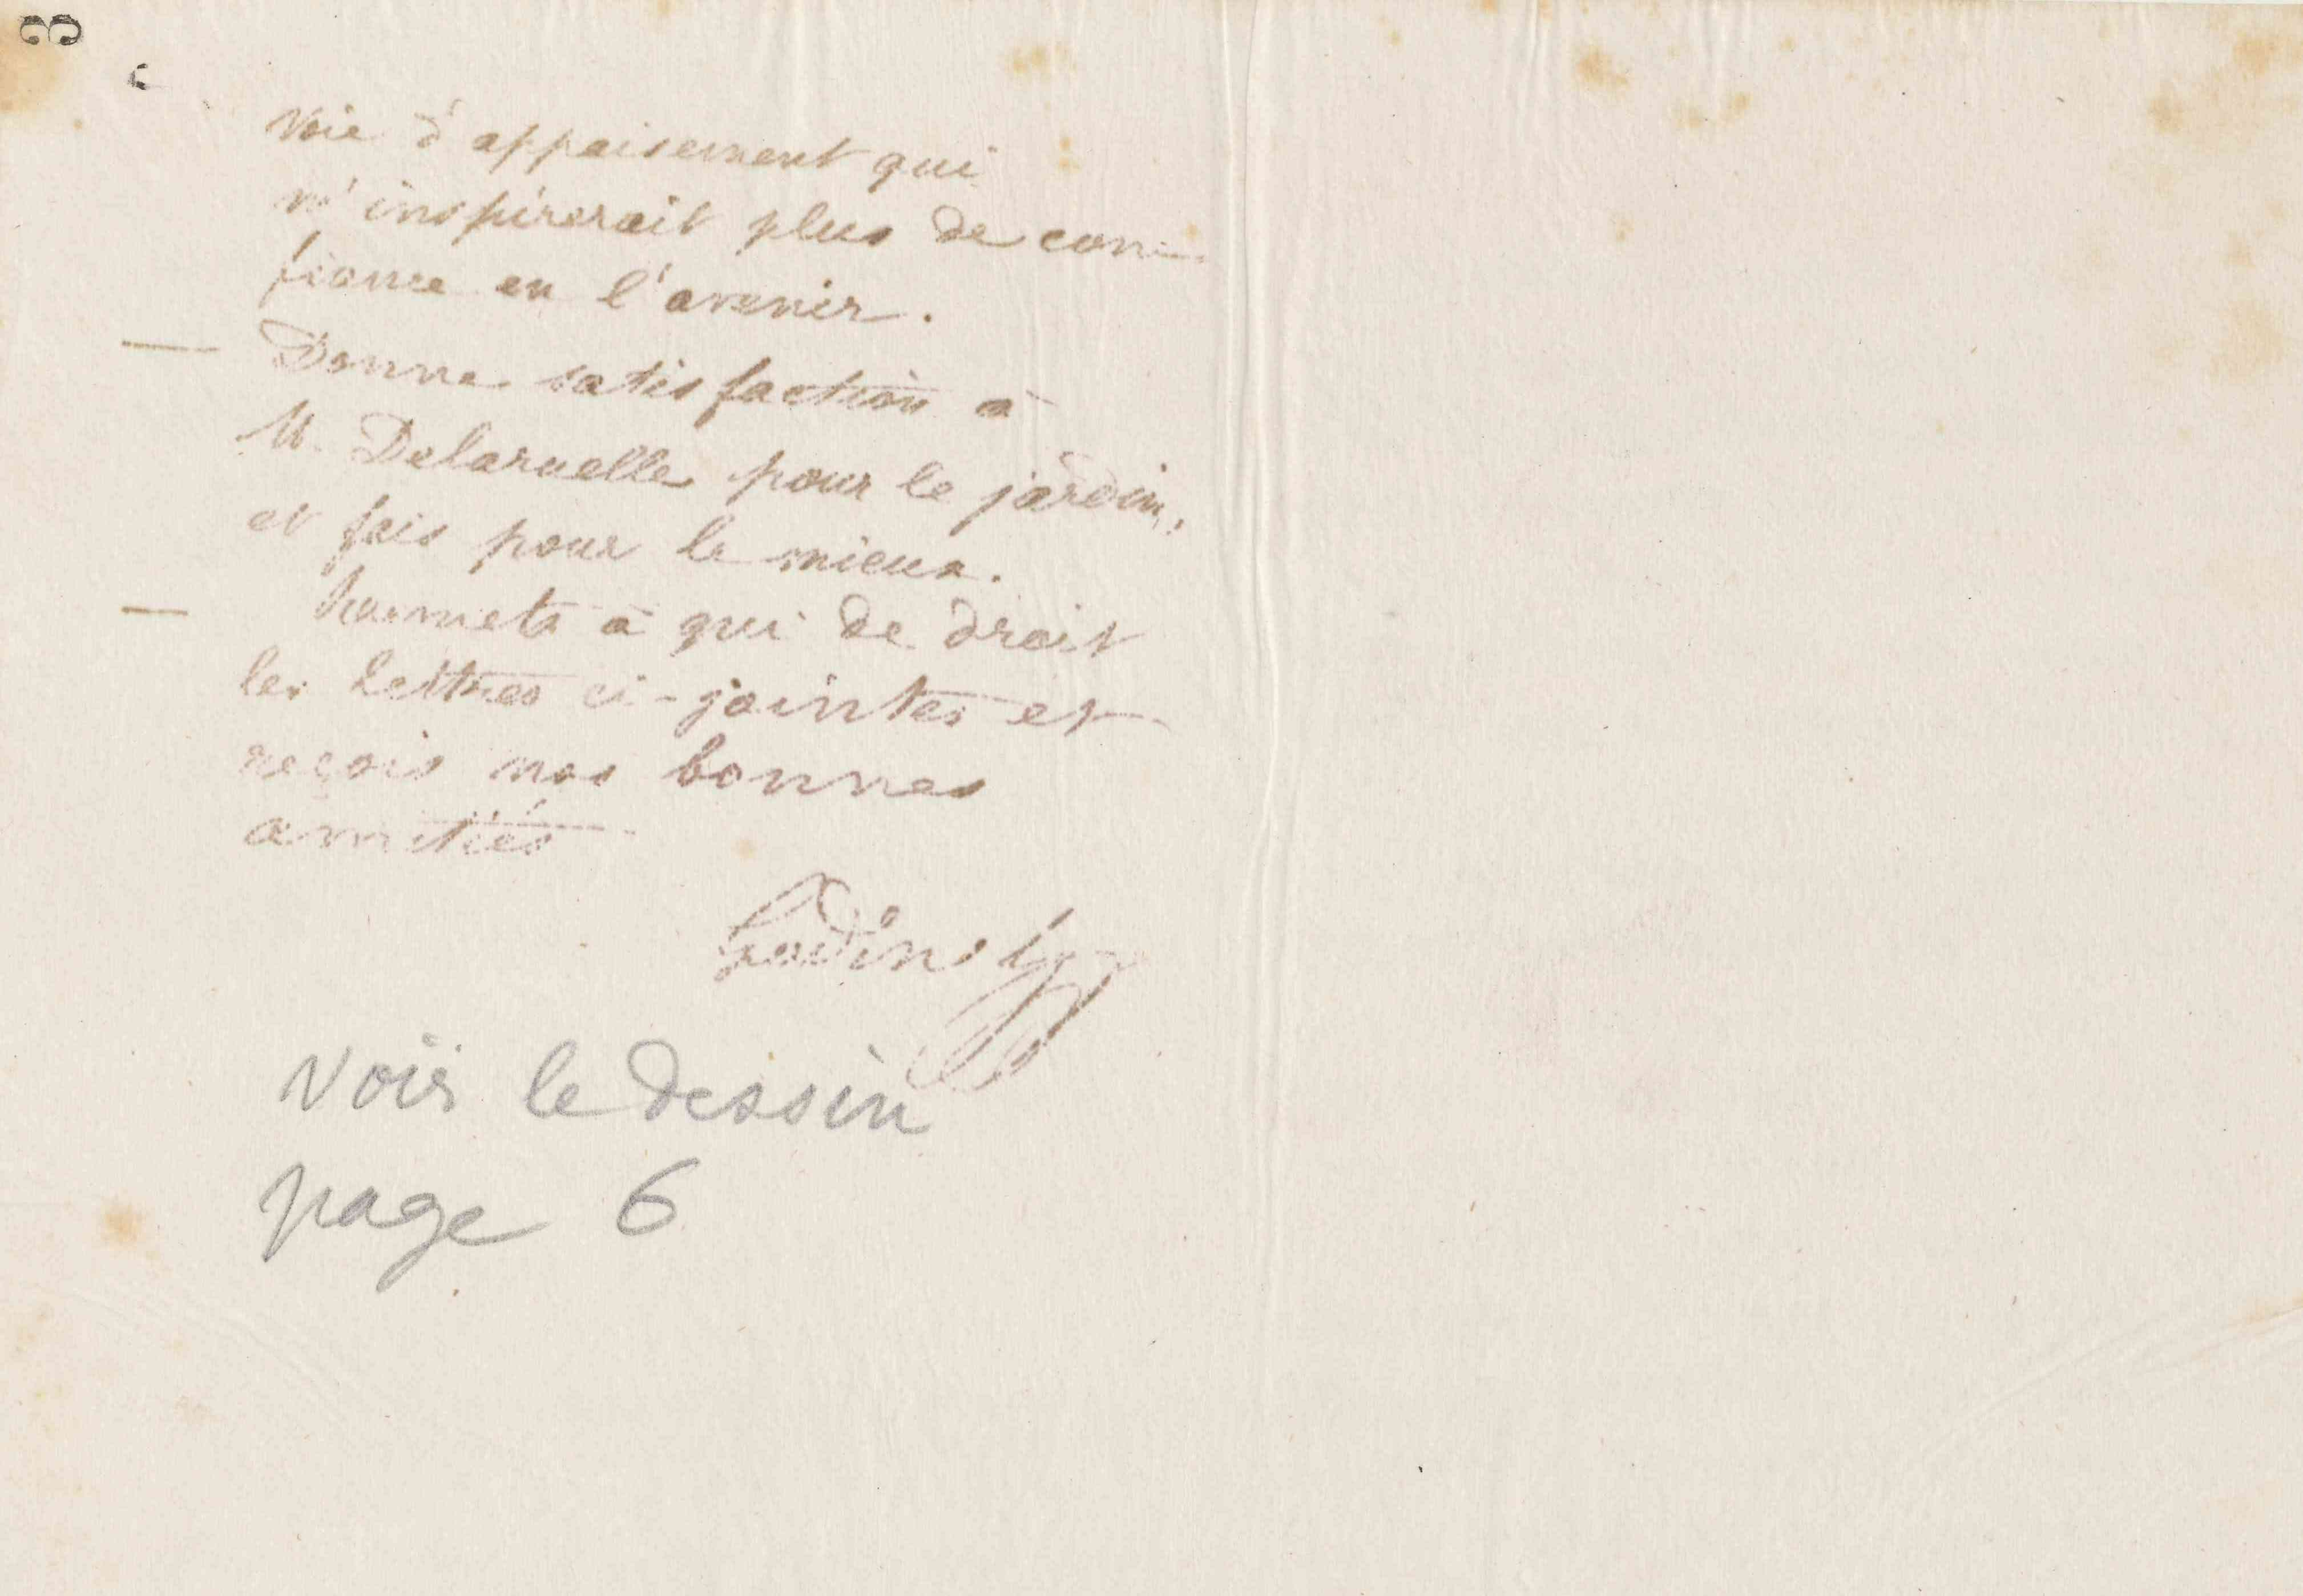 3
voie d'appaisement qui
m'inspirerait plus de con-
fiance en l'avenir.
— Donne satisfaction à
M. Delaruelle pour le jardin,
et fais pour le mieux.
— à qui de droit
les lettres ci-jointes et
reçois nos bonnes
amitiés
Godin
Voir le dessin
page 6